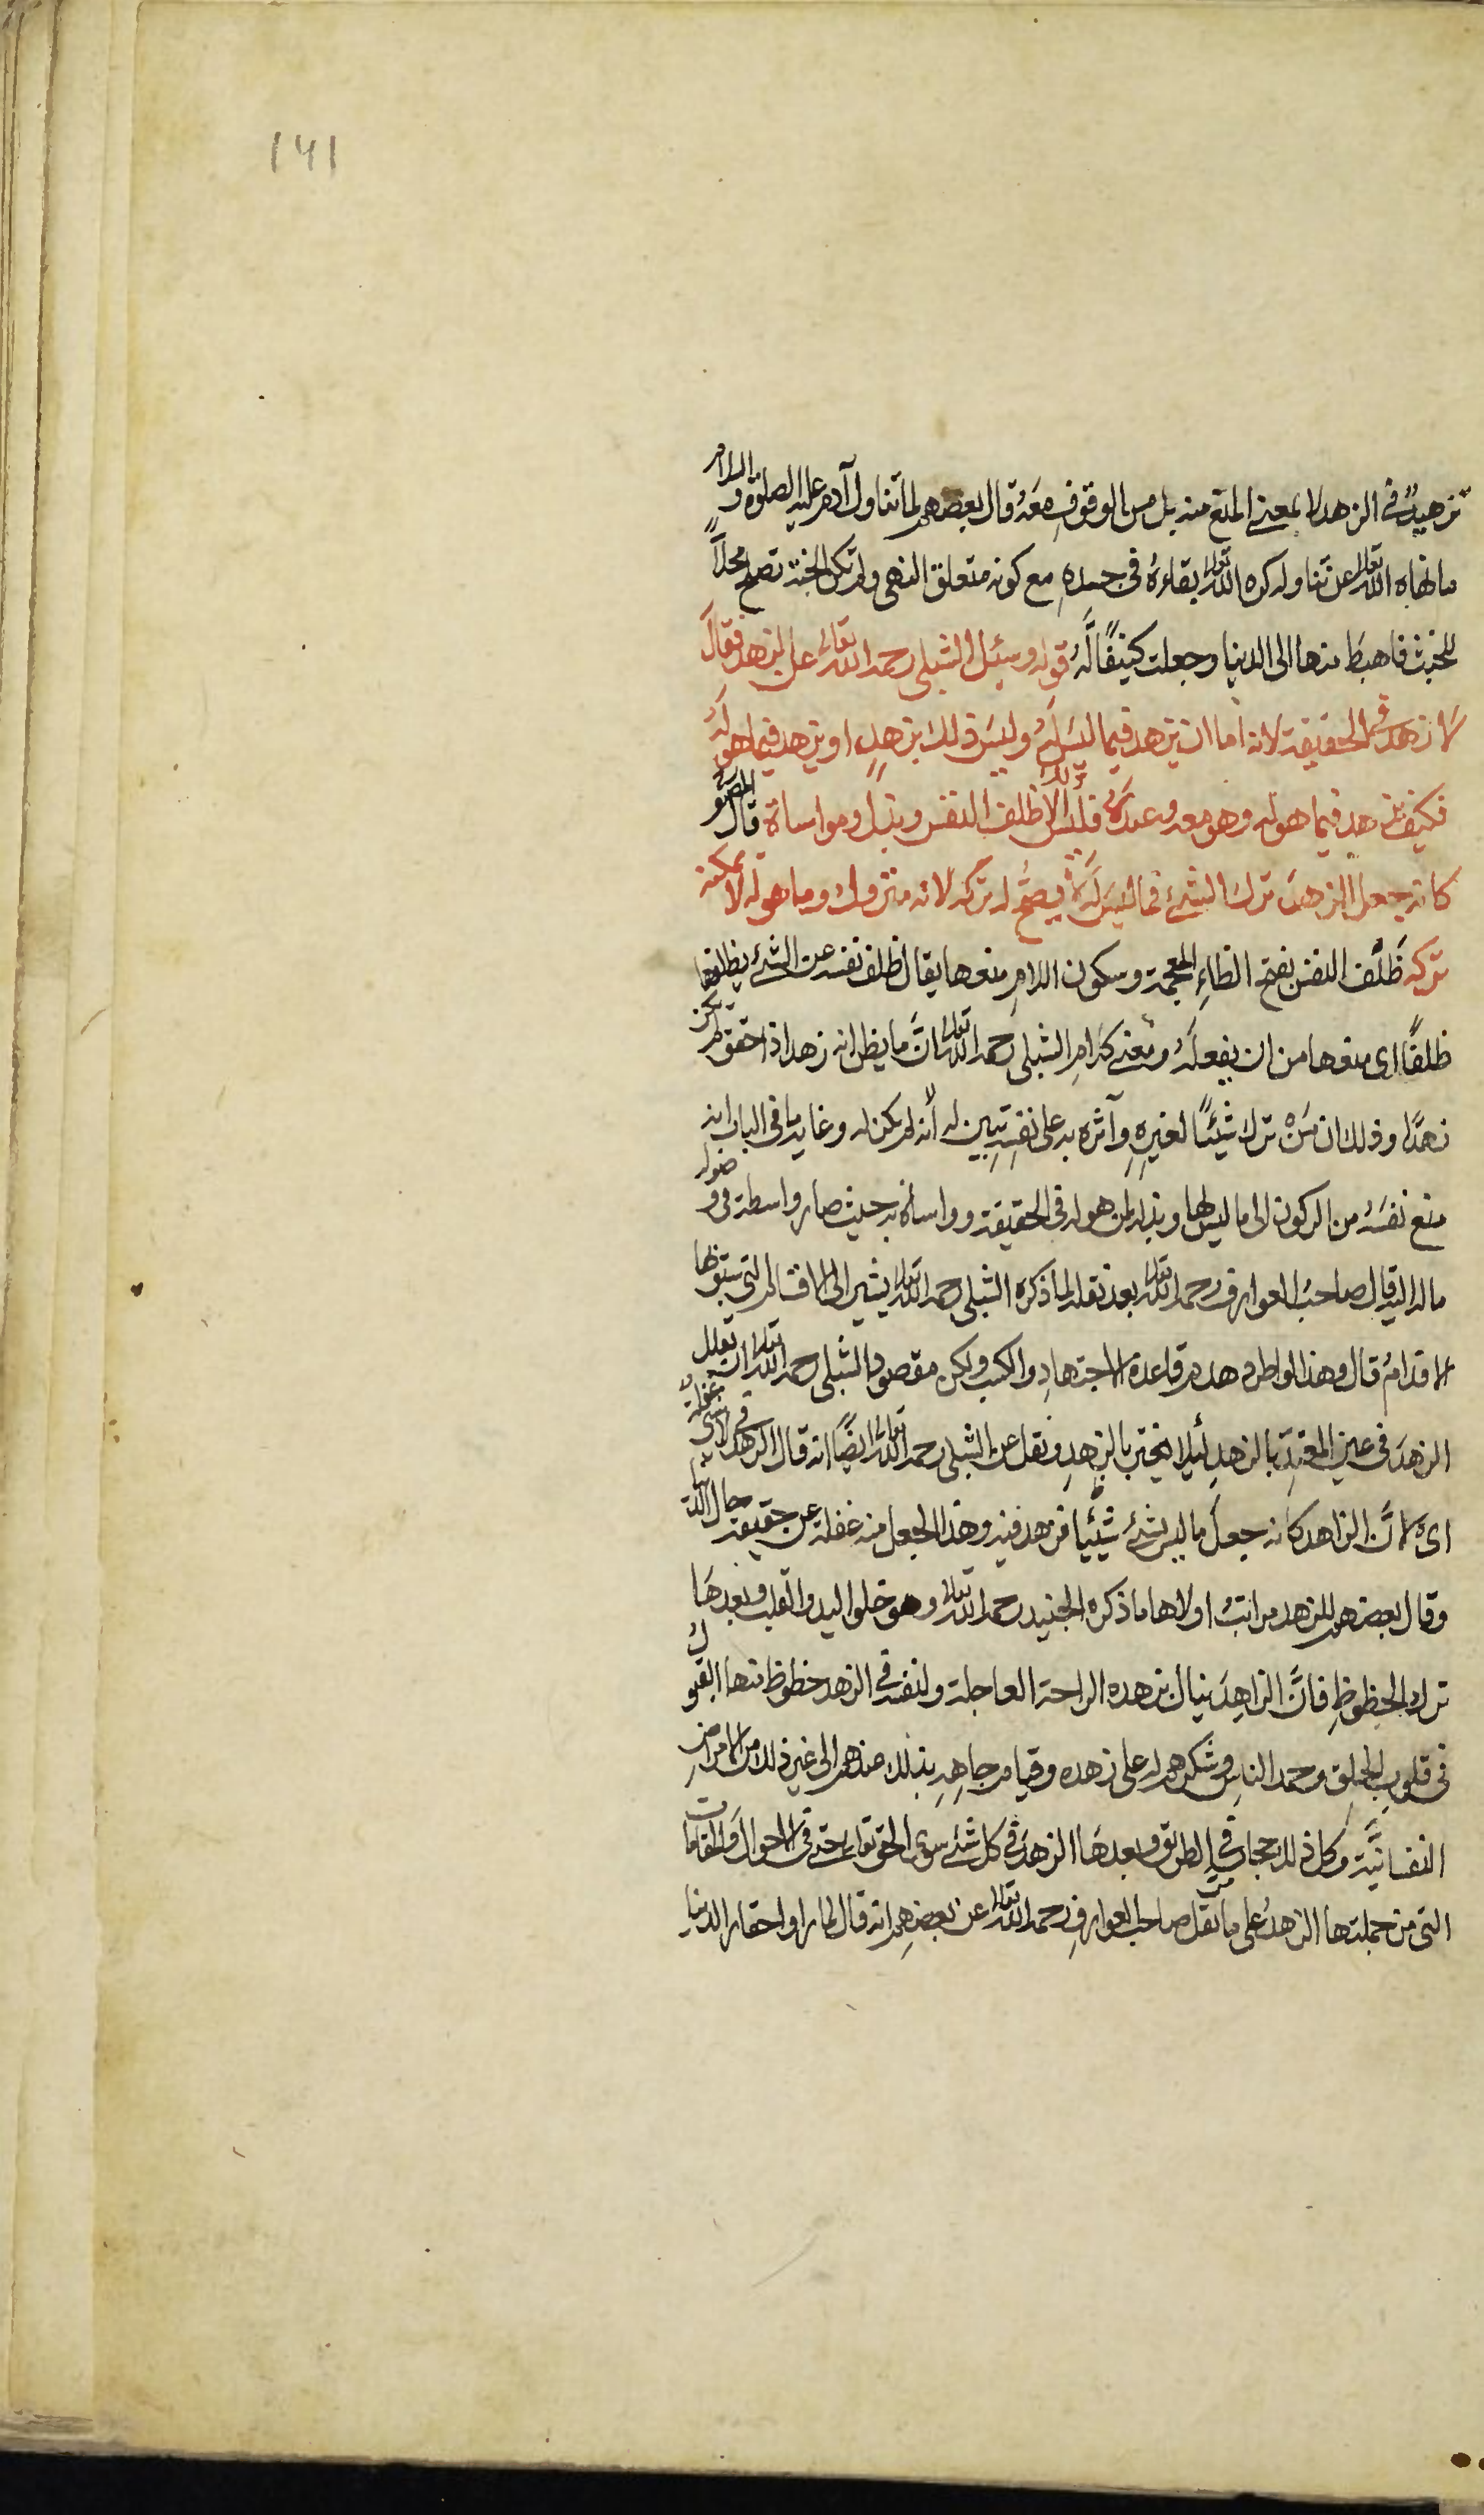 ١٦١
تزهيدٌ في الزهد لا بمعنى المنع منه بل من الوقوفِ معَهُ قال بعضهم لما تناول آدم عليه الصلوة والسلام
ما نهاه الله تعالى عن تناوله كره الله تعالى بقاءهُ في جسدهِ مع كونه متعلق النهى ولم تكن الجنة تصلح محلًّا
للخبث فاهبطَ منها الى الدنيا وجعلت كنيفًا لَهُ قوله وسئل الشبلى رحمه الله تعالى عن الزهد فقال
لا زهد في الحقيقة لانه اما ان يزهد فيما ليسَ لَهُ وليسَ ذلك بزهدٍ او يزهد فيما هو لَهُ
فكيف يزهد فيما هو له وهو معه وعندَهُ فليس الا ظلف النفس وبذل ومواساة قال المصنف
كانه جعل الزهد ترك الشئ فما ليسَ لَهُ لا يصحُّ له تركه لانه متروك وما هو له لا يمكنه
تركه ظَلْف النفس بفتح الظاءِ المعجمة وسكون اللامِ منعها يقال ظلف نفسه عن الشئ يظلفها
ظلفًا اى منعها من ان يفعلَهُ ومعنى كلامِ الشبلى رحمه الله تعالى انَّ ما يظن انه زهد اذا حقق لم يكن
زهدًا وذلك ان مَنْ ترك شيئًا لغيرِهِ وآثره به على نفسِهِ تبين له أنه لم يكن له وغاية ما في الباب انه
منع نفسَهُ من الركون الى ما ليس لها وبذله لمن هو له في الحقيقة وواساه به حيث صار واسطة في وصوله
ماله اليه قال صاحبُ العوارف رحمه الله تعالى بعد نقله لما ذكره الشبلى رحمه الله تعالى يشير الى الاقسام التى سبقت بها
الاقدامُ قال وهذا لو اطرد هدم قاعدة الاجتهادِ والكسب ولكن مقصود الشبلى رحمه الله تعالى ان يقلل
الزهدَ في عين المعتدِّ بالزهدِ لئلا يغتر بالزهدِ ونقل عن الشبلى رحمه الله تعالى ايضًا انه قال الزهد غفلة لان الدنيا لا شئ والزهد في لا شئ غفلة
اى لانَّ الزاهد كانه جعلَ ما ليس بشئ شيئًا فزهد فيه وهذا الجعل منه غفلة عن حقيقةِ حال الدنيا
وقال بعضهم للزهد مراتبُ اولاها ما ذكره الجنيد رحمه الله تعالى وهو خلو اليد والقلب وبعدهَا
ترك الحظوظِ فانَّ الزاهِدَ ينال بزهده الراحة العاجلة ولنفسه في الزهد حظوظ منها القبولُ
في قلوبِ الخلق وحمد الناسِ وشكرهم له على زهده وقيام جاهِهِ بذلك عندهم الى غير ذلك من الامراضِ
النفسانيَّة وكل ذلك حجاب في الطريق وبعدهَا الزهدَ في كل شئ سوى الحق تعالى حتى في الاحوال والمقامات
التى من جملتها الزهدُ على ما نقل صاحب العوارفِ رحمه الله تعالى عن بعضِهم انه قال لما راوا حقارة الدنيا